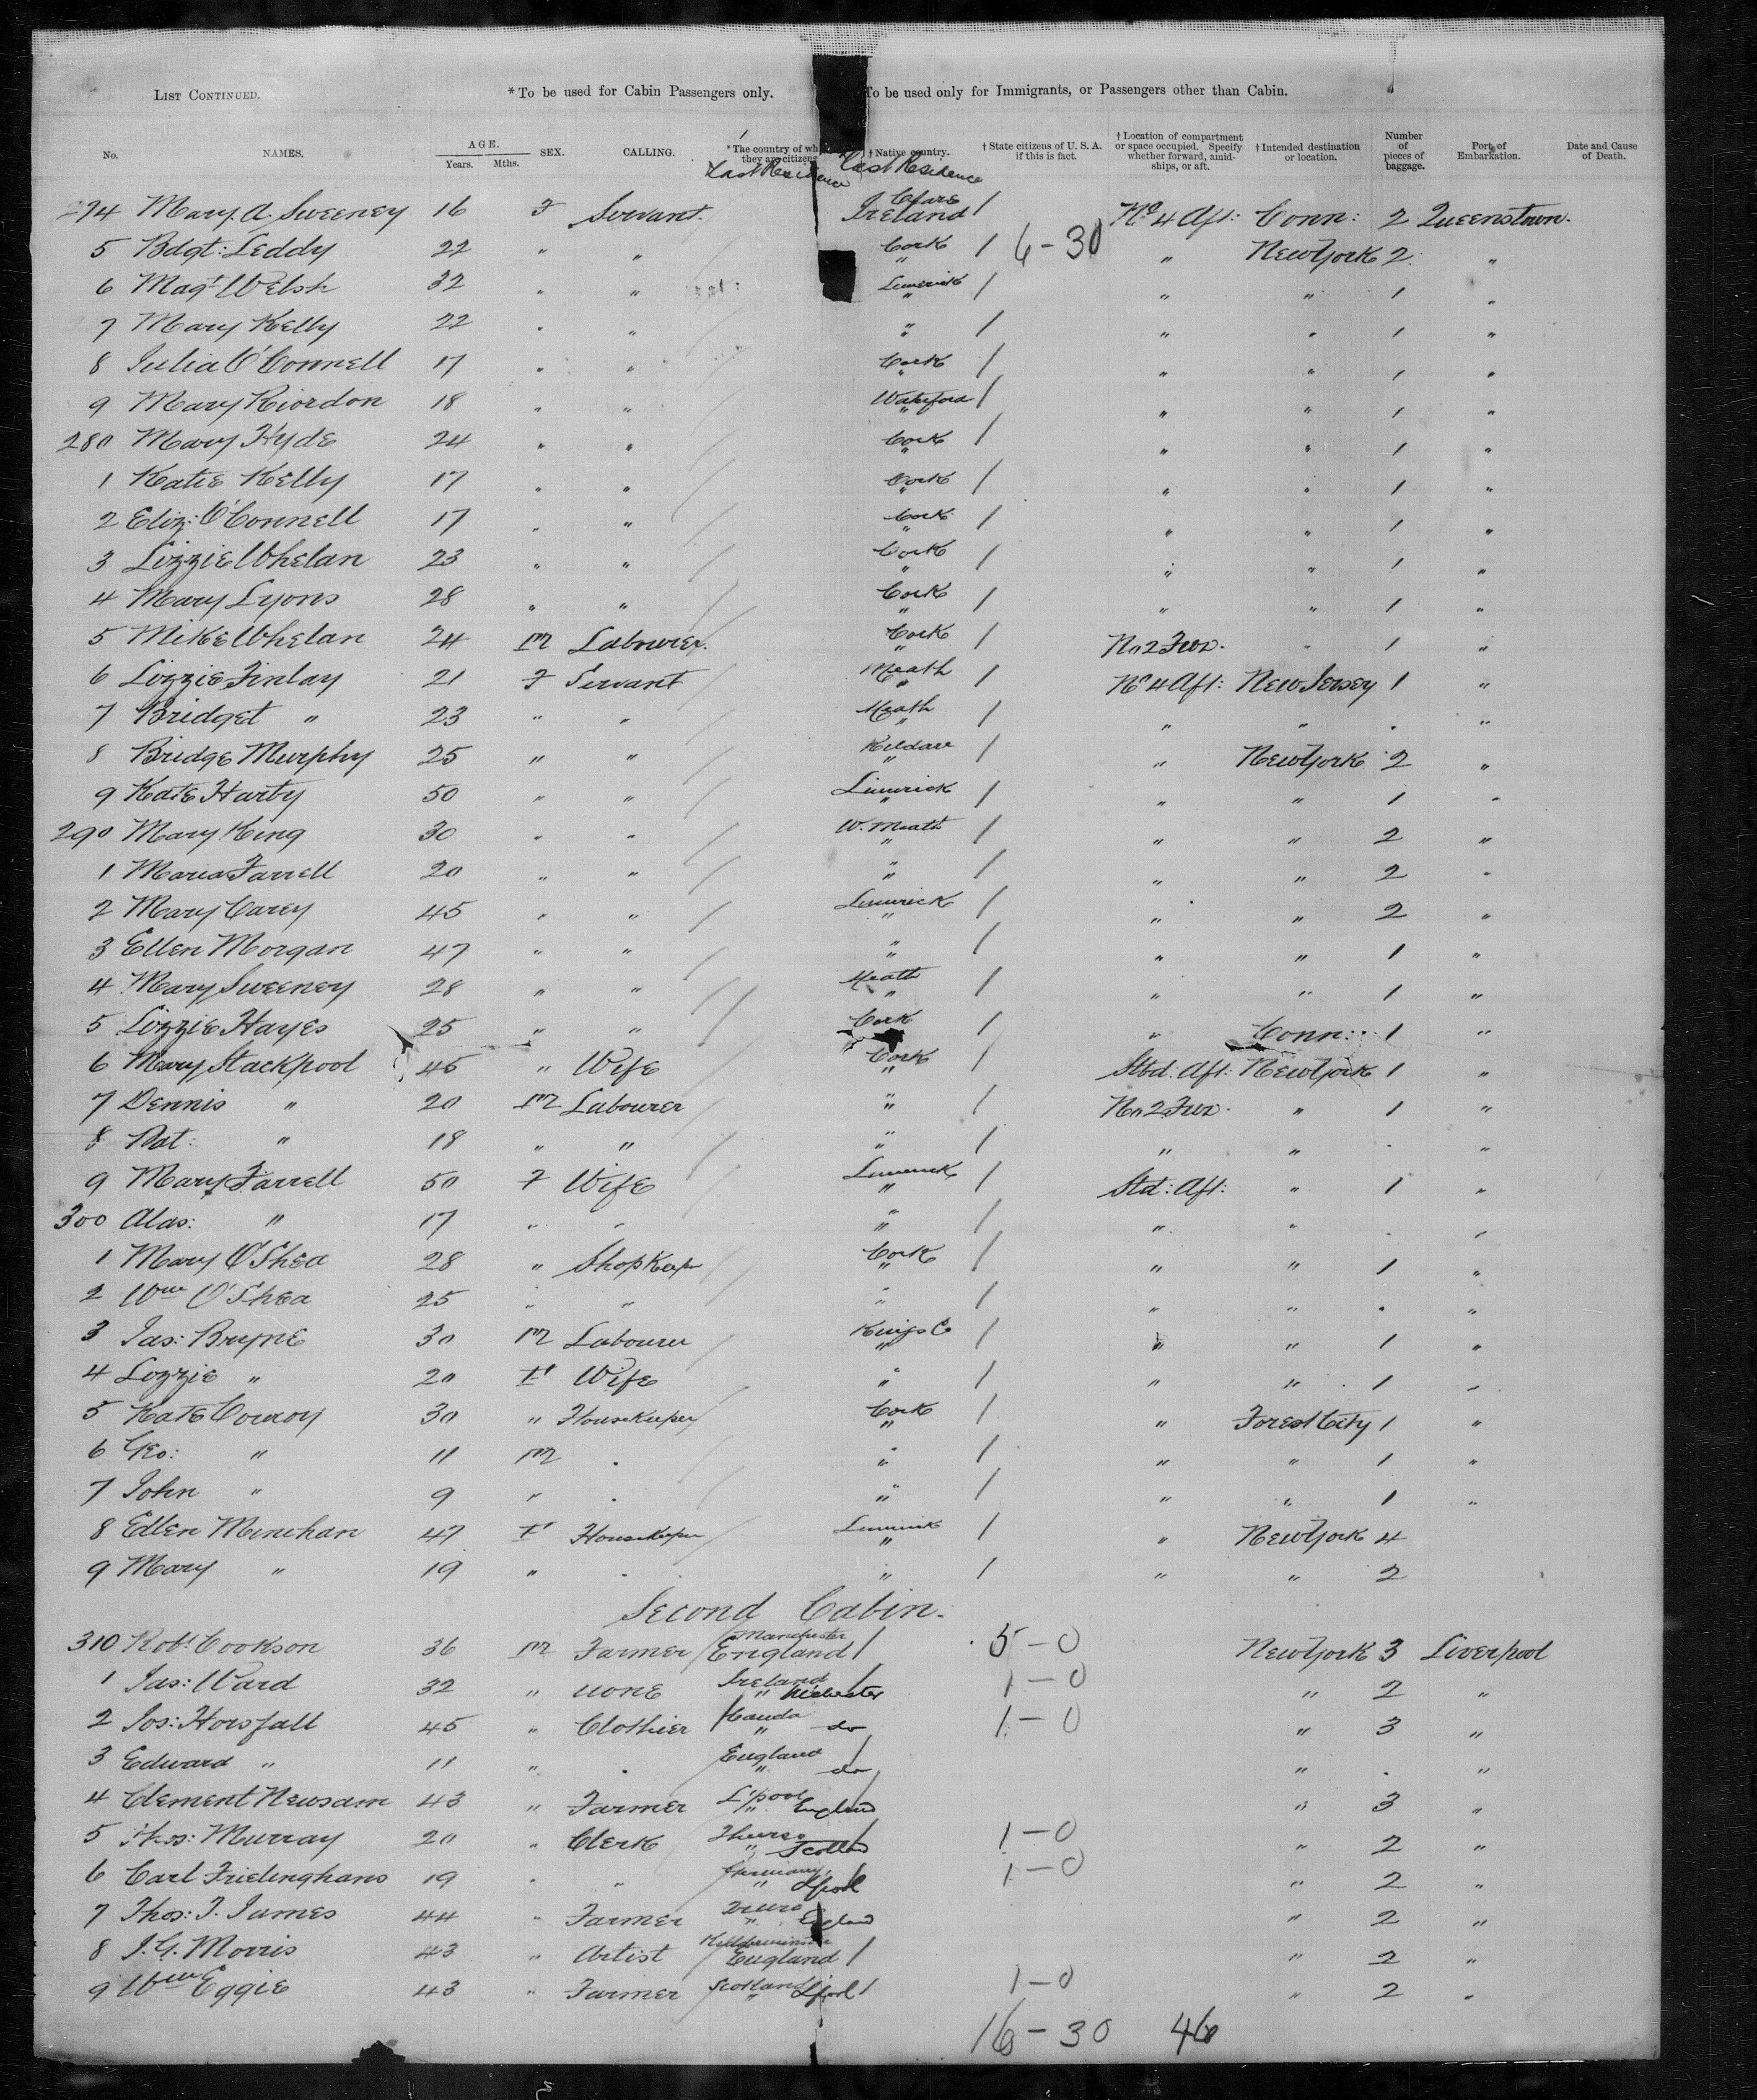 LIST CONTINUED.
*To be used for Cabin Passengers only.
To be used only for Immigrants, or Passengers other than Cabin.
No. NAMES. AGE. Years. Mths. SEX. CALLING. *The country of wh they are citizens †Native country. †State citizens of U. S. A. if this is fact. †Location of compartment or space occupied. Specify whether forward, amid-ships, or aft. †Intended destination or location. Number of pieces of baggage. Port of Embarkation. Date and Cause of Death.
Last Residence Last Residence
274 Mary A Sweeney 16 F Servant. Clare Ireland / No 4 Aft: Conn: 2 Queenstown.
5 Bdgt: Leddy 22 " " Cork " / 6-30 " New York 2 "
6 Magt Welsh 32 " " Limerick " / " " 1 "
7 Mary Kelly 22 " " " / " " 1 "
8 Julia O'Connell 17 " " Cork " / " " 1 "
9 Mary Riordon 18 " " Waterford " / " " 1 "
280 Mary Hyde 24 " " Cork " / " " 1 "
1 Katie Kelly 17 " " Cork " / " " 1 "
2 Eliz: O'Connell 17 " " Cork " / " " 1 "
3 Lizzie Whelan 23 " " Cork " / " " 1 "
4 Mary Lyons 28 " " Cork " / " " 1 "
5 Mike Whelan 24 M Labourer. Cork " / No 2 Fwd. " 1 "
6 Lizzie Finlay 21 F Servant Meath " / No 4 Aft: New Jersey 1 "
7 Bridget " 23 " " Meath " / " " . "
8 Bridge Murphy 25 " " Kildare " / " New York 2 "
9 Kate Harty 50 " " Limerick " / " " 1 "
290 Mary King 30 " " W. Meath " / " " 2 "
1 Maria Farrell 20 " " " / " " 2 "
2 Mary Carey 45 " " Limerick " / " " 2 "
3 Ellen Morgan 47 " " " / " " 1 "
4 Mary Sweeney 28 " " Meath " / " " 1 "
5 Lizzie Hayes 25 " " Cork / " Conn: 1 "
6 Mary Stackpool 45 " Wife Cork " / Stbd: Aft: New York 1 "
7 Dennis " 20 M Labourer " / No 2 Fwd. " 1 "
8 Pat: " 18 " " " / " " . "
9 Mary Farrell 50 F Wife Limerick " / Std: Aft: " 1 "
300 " 17 " " " / " " . "
1 Mary O'Shea 28 " Shop Keeper Cork " / " " 1 "
2 Wm O'Shea 25 " " " / " " . "
3 Jas: Bryne 30 M Labourer Kings Co " / " " 1 "
4 Lizzie " 20 F Wife " / " " 1 "
5 Kate Conroy 30 " Housekeeper Cork " / " Forest City 1 "
6 Geo: " 11 M . " / " " 1 "
7 John " 9 " . " / " " 1 "
8 Ellen Minehan 47 F Housekeeper Limerick " / " New York 4
9 Mary " 19 " . " / " " 2
Second Cabin.
310 Robt Cookson 36 M Farmer Manchester England / 5-0 New York 3 Liverpool
1 Jas: Ward 32 " none Ireland " / 1-0 " 2 "
2 Jos: Horsfall 45 " Clothier " do 1-0 " 3 "
3 Edward " 11 " . England " do / " . "
4 Clement Newsam 43 " Farmer L'pool " England / " 3 "
5 Thos: Murray 20 " Clerk " Scotland / 1-0 " 2 "
6 Carl Frielinghans 19 " " Germany " Lpool / 1-0 " 2 "
7 Thos: J. James 44 " Farmer Truro " England " 2 "
8 J. G. Morris 43 " Artist Kidderminster England / " 2 "
9 Wm Eggie 43 " Farmer Scotland " Lpool / 1-0 " 2 "
16-30 46